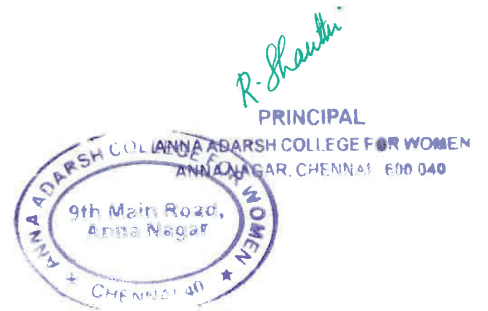 R. Shanthi
PRINCIPAL
ANNA ADARSH COLLEGE FOR WOMEN
ANNA NAGAR, CHENNAI 600 040
ANNA ADARSH COLLEGE FOR WOMEN
9th Main Road,
Anna Nagar
★ CHENNAI 40 ★